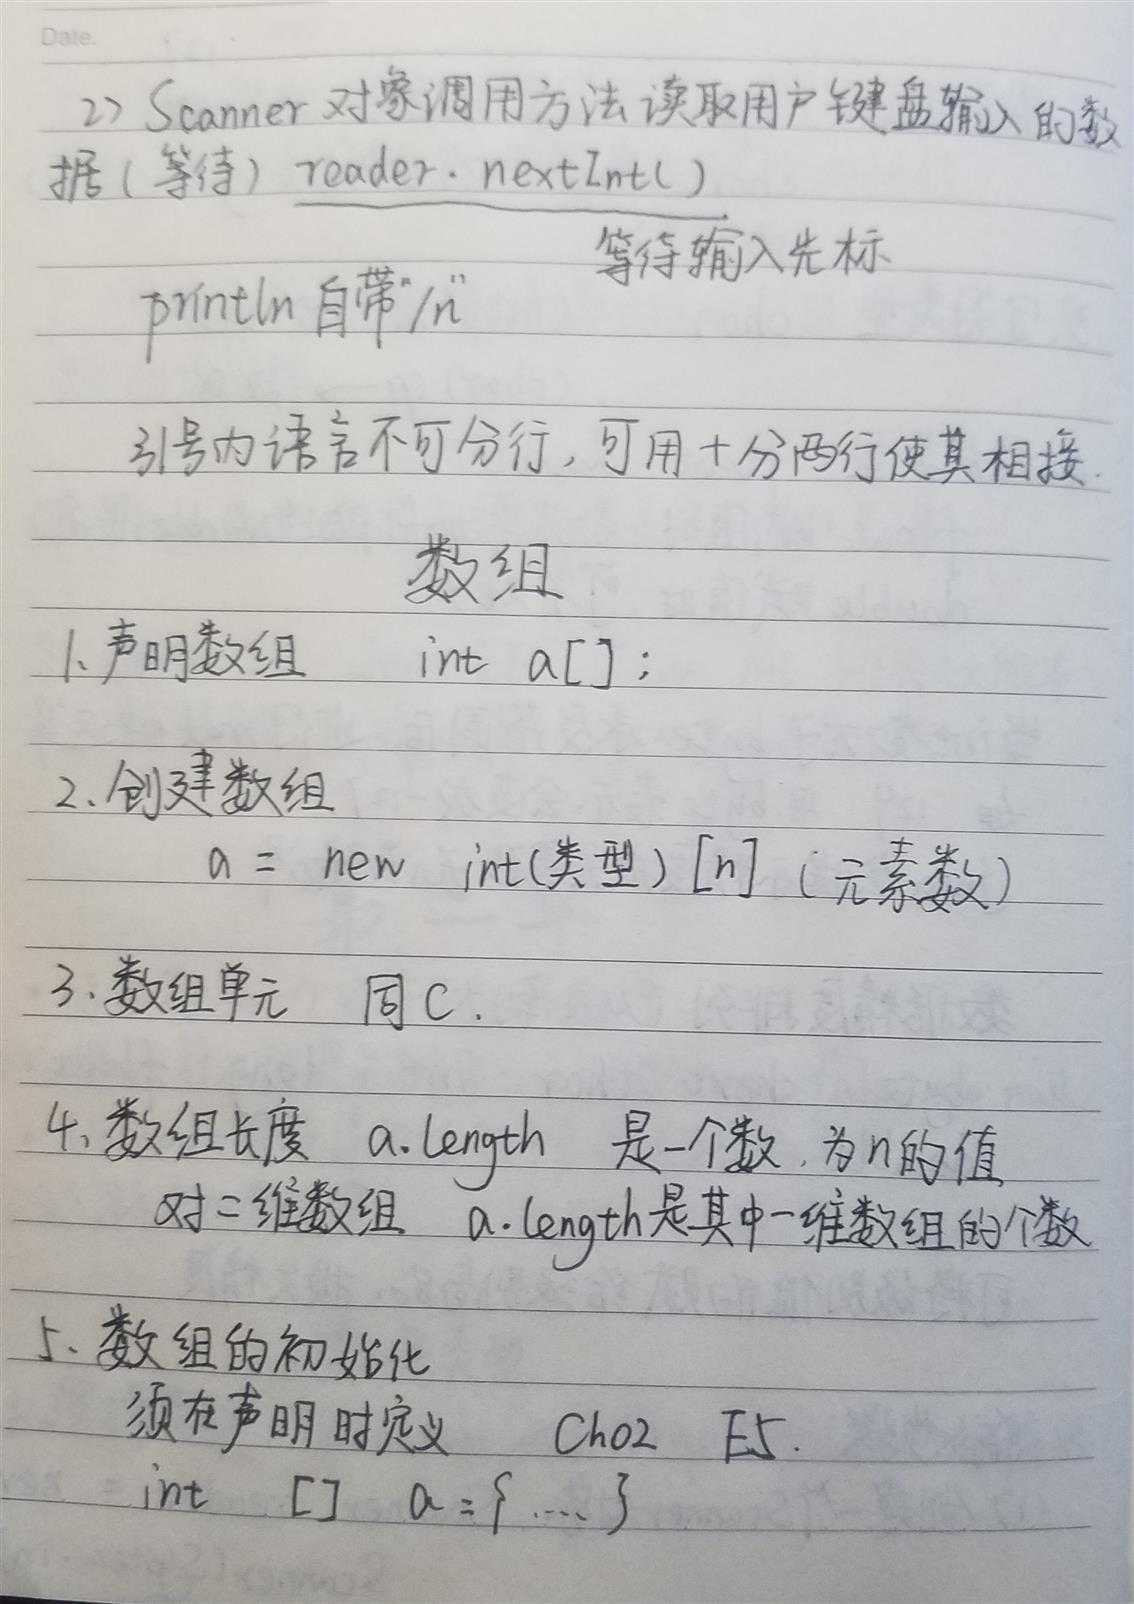 Date.
2> Scanner 对象调用方法读取用户键盘输入的数
据(等待) reader.nextInt()
等待输入先标
println 自带"/n"
引号内语言不可分行,可用+分两行使其相接.
数组
1、声明数组 int a[];
2、创建数组
a = new int(类型)[n](元素数)
3、数组单元 同C.
4、数组长度 a.length 是一个数,为n的值
对二维数组 a.length是其中一维数组的个数
5、数组的初始化
须在声明时定义 Ch02 E5.
int [] a={....}